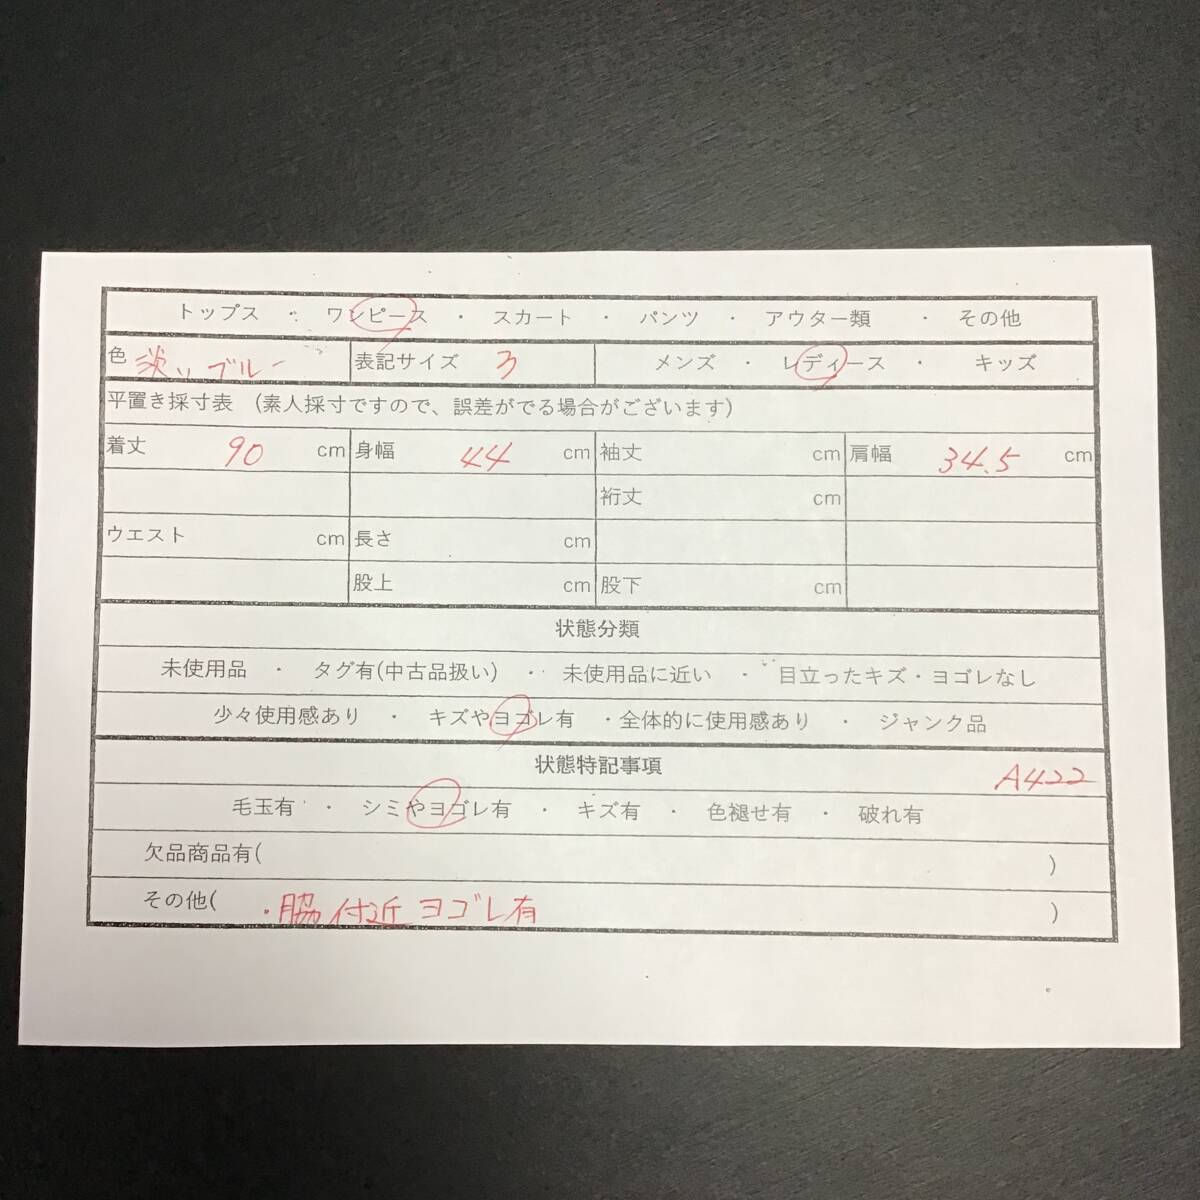 トップス ・ ワンピース ・ スカート ・ パンツ ・ アウター類 ・ その他
色 淡いブルー 表記サイズ 3 メンズ ・ レディース ・ キッズ
平置き採寸表 (素人採寸ですので、誤差がでる場合がございます)
着丈 90 cm 身幅 44 cm 袖丈 cm 肩幅 34.5 cm
裄丈 cm
ウエスト cm 長さ cm
股上 cm 股下 cm
状態分類
未使用品 ・ タグ有(中古品扱い) ・ 未使用品に近い ・ 目立ったキズ・ヨゴレなし
少々使用感あり ・ キズやヨゴレ有 ・全体的に使用感あり ・ ジャンク品
状態特記事項 A422
毛玉有 ・ シミやヨゴレ有 ・ キズ有 ・ 色褪せ有 ・ 破れ有
欠品商品有( )
その他( ・脇付近ヨゴレ有 )